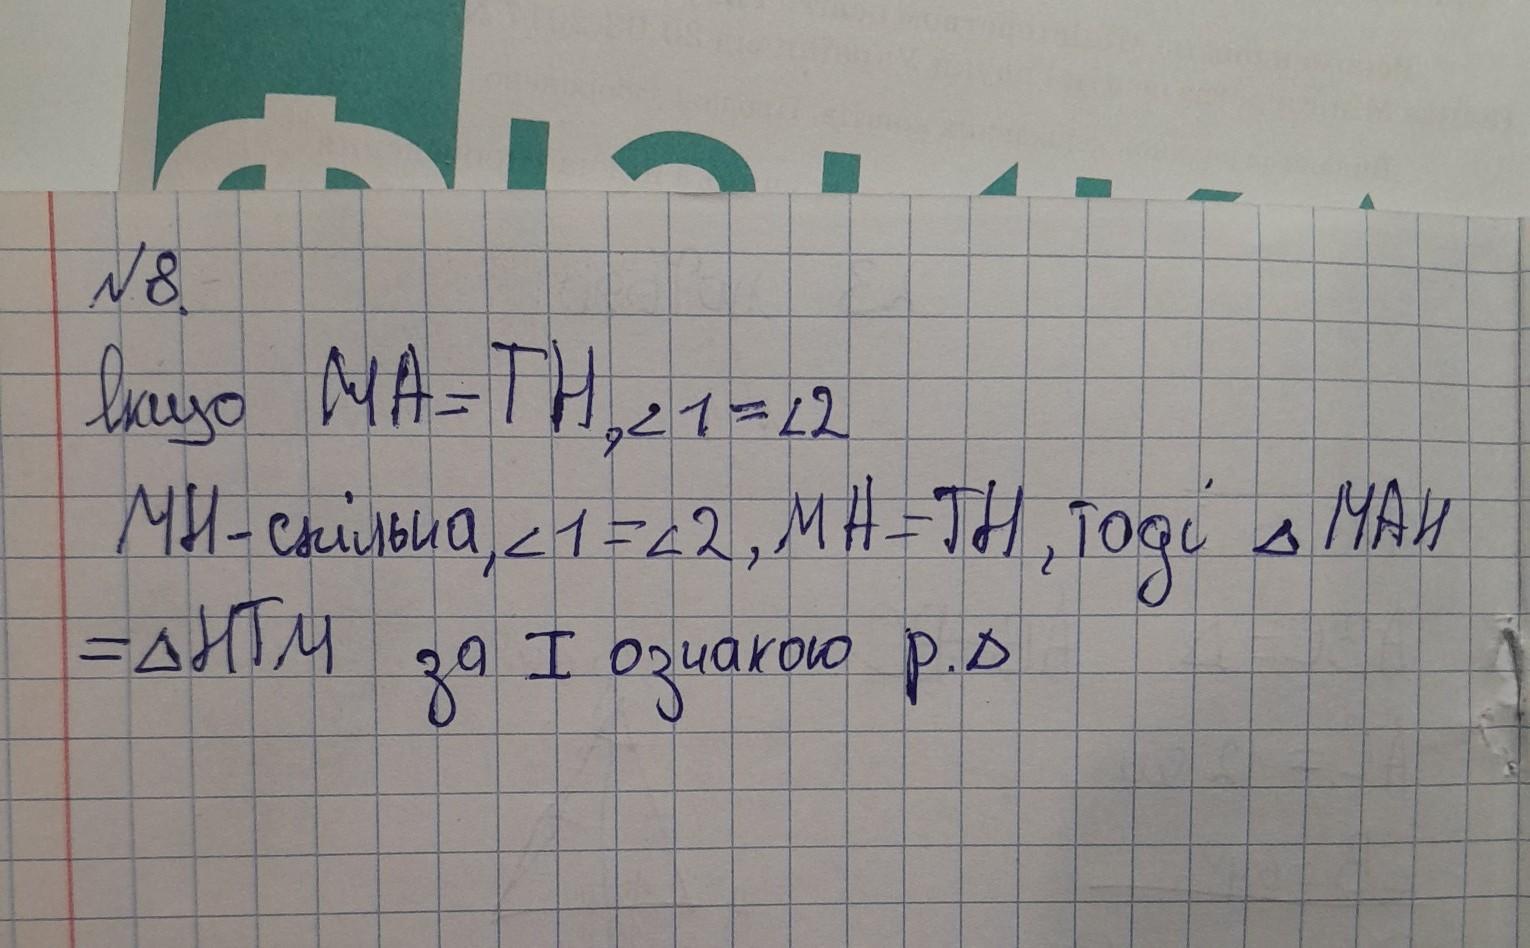 №8.
Якщо МА=ТН, ∠1=∠2
МН-спільна, ∠1=∠2, МА=ТН, тоді △ МАН
=△НТМ за І ознакою р.△